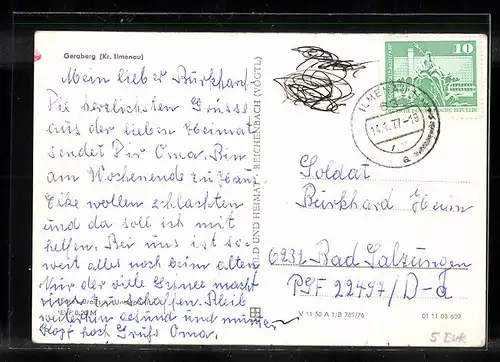 Geraberg (Kr. Ilmenau)
Mein lieber Burkhard.
Die herzlichsten Grüsse
aus der lieben Heimat
sendet Dir Oma. Bin
am Wochenende zu Haus
Elke wollen schlachten
und da soll ich mit
helfen. Bei uns ist so-
weit alles noch beim alten
Nur der viele Schnee macht
zu schaffen. Bleib
weiterhin gesund und munter
Kopf hoch Gruß Oma.
EVP 0,20 M
BILD UND HEIMAT REICHENBACH (VOGTL)
10
DEUTSCHE DEMOKRATISCHE REPUBLIK
ILMENAU
14.1.77-19
a
Soldat
Burkhard Hein
6232 Bad Salzungen
PSF 22497/D-a
V 11 50 A 1/B 789/76
01 11 03 609
5 EUR